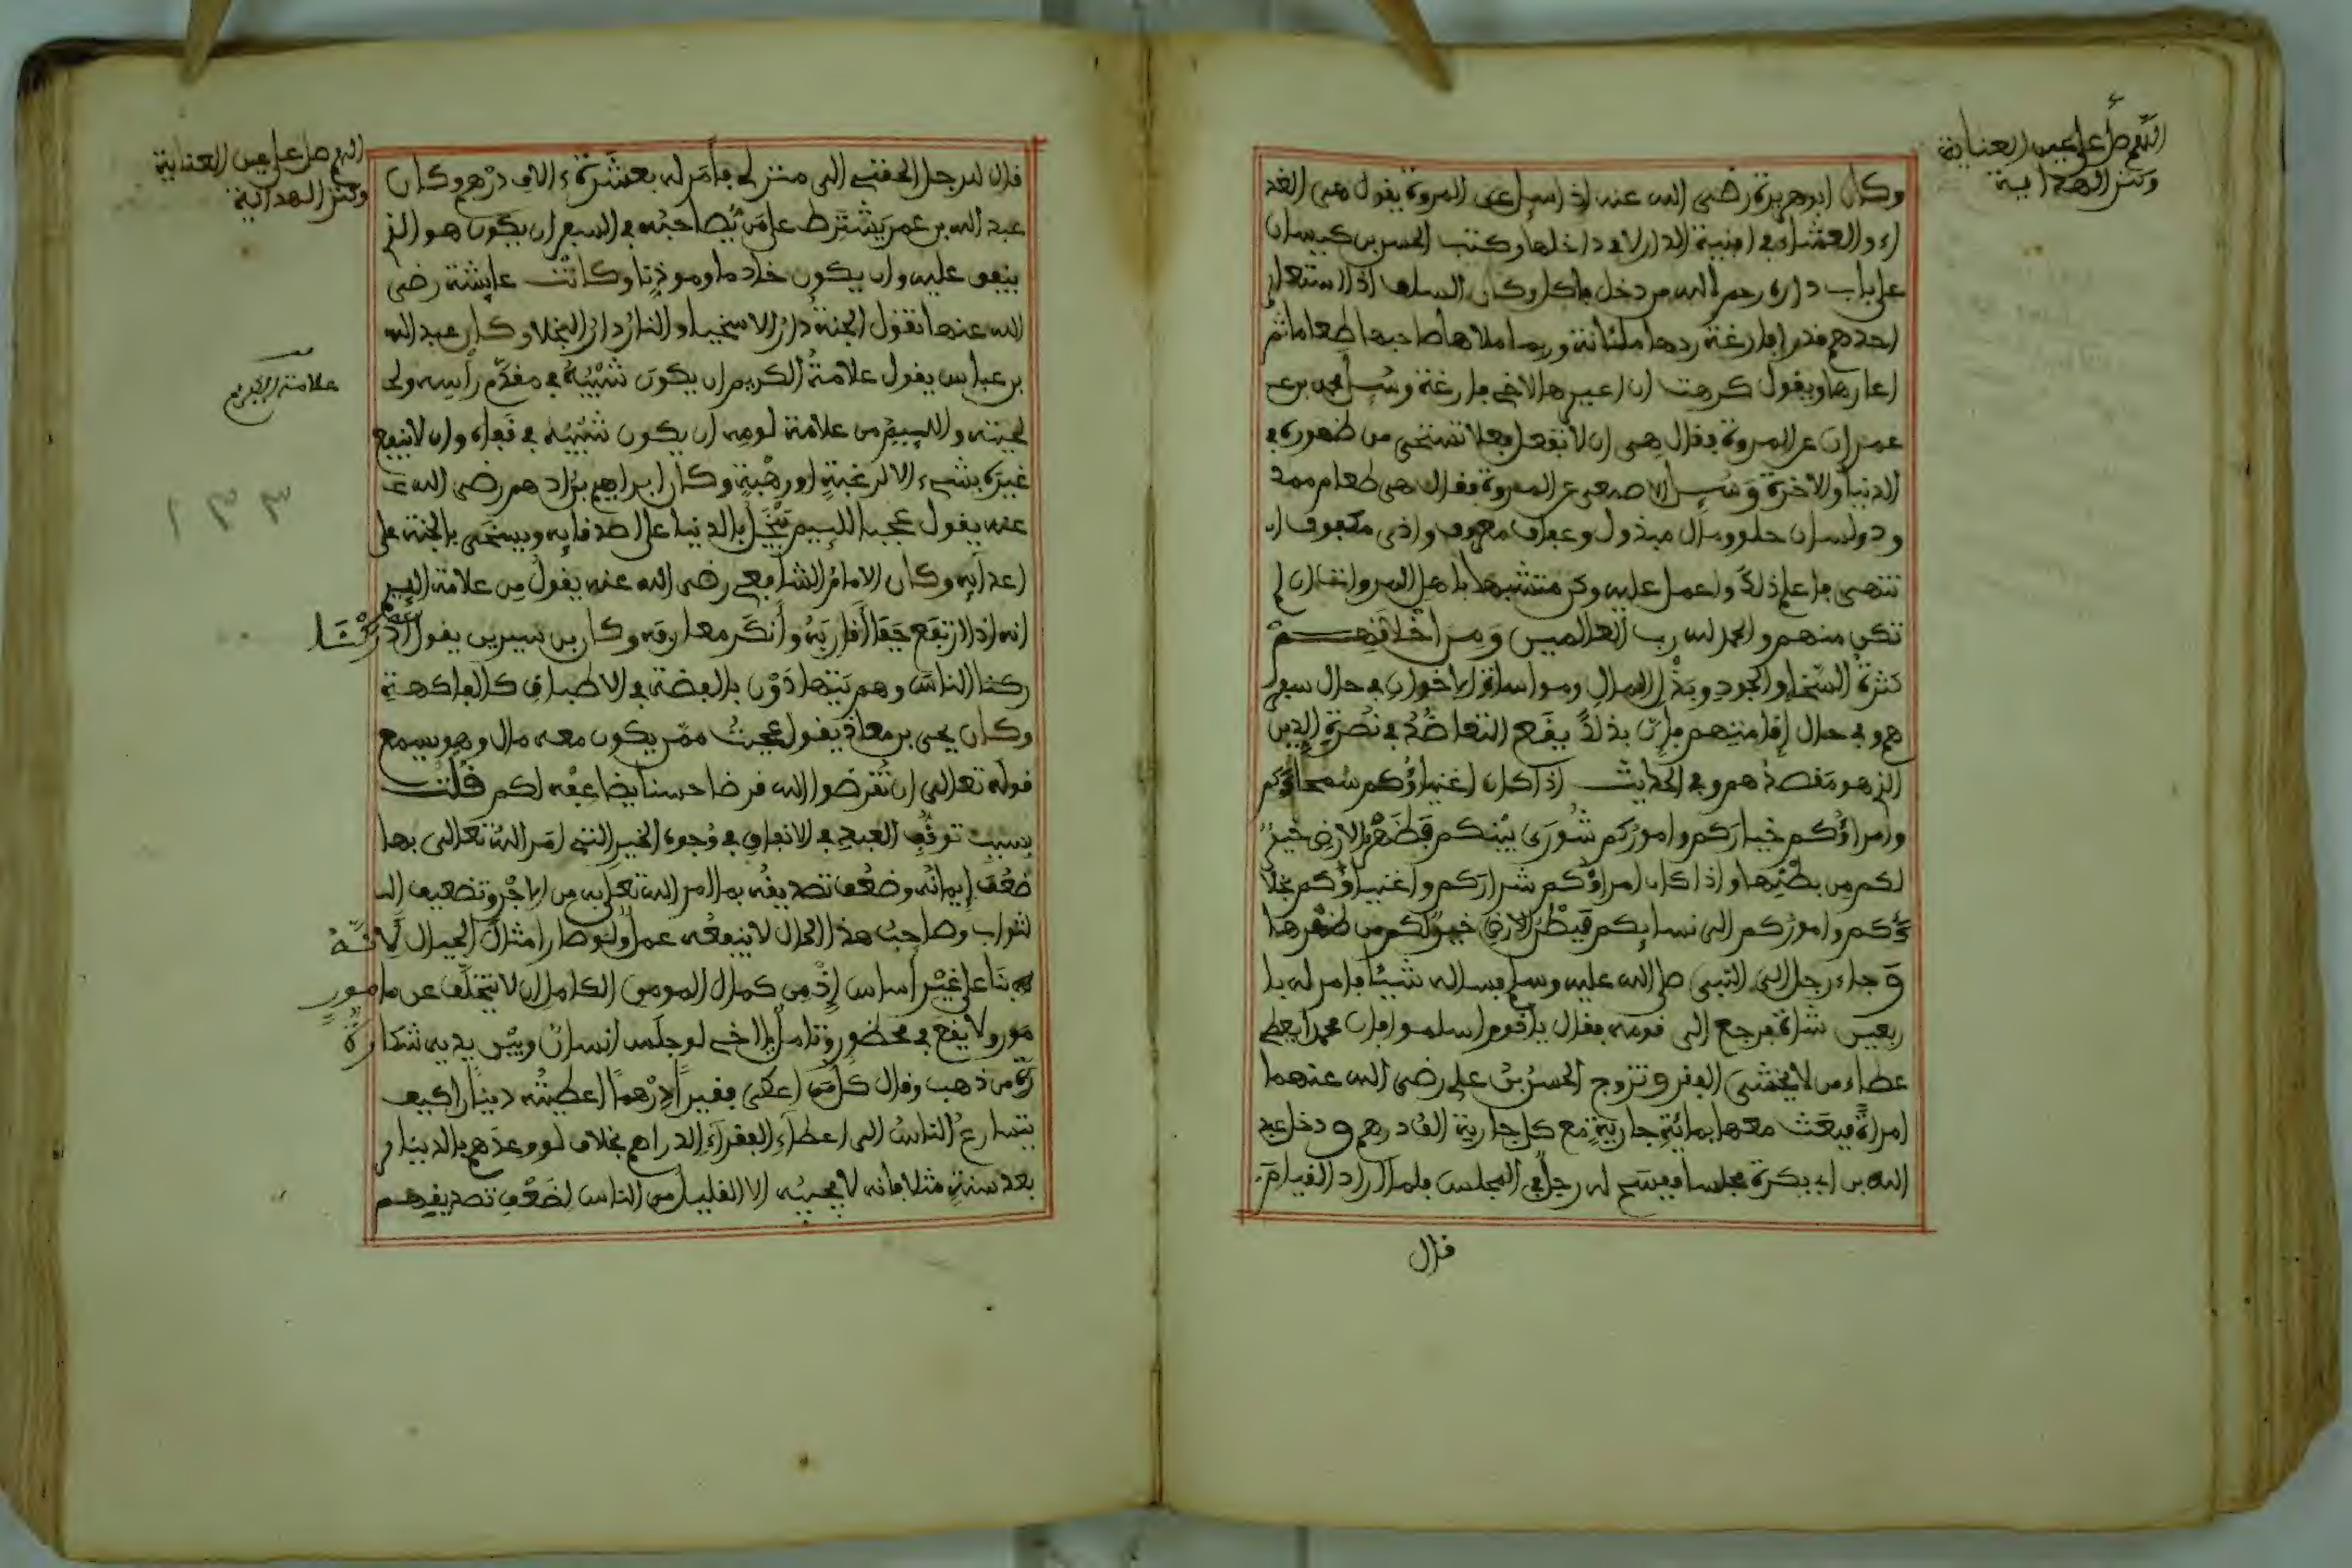 اللهم صل على عين العناية
وكنز الهداية
وكان ابو هريرة رضي الله عنه اذا سيل عن المروة يقول هي الغد
اء والعشاء في افنية الدار لا في داخلها وكتب الحسن بن كيسان
على باب داره رحم الله من دخل فاكل وكان السلف اذا استعار
احدهم قدرا فارغة ردها ملئانة وربما ملاها صاحبها طعاما ثم
اعارها ويقول كرهت ان اعيرها لاخي فارغة وسيل محمد بن عـ
عمران عن المروة فقال هي ان لا تفعل فعلا تستحي من ظهوره في
الدنيا والاخرة وسيل الاصمعي عن المروة فقال هي طعام ممد
ود ولسان حلو ومال مبذول وعفاف معروف واذى مكفوف ا
تتهى فاعلم ذلك واعمل عليه وكن متشبها باهل الله وان لم
تكن منهم والحمد لله رب العالمين ومن اخلاقهم
كثرة السخاء والجود وبذل المال ومواساة الاخوان في حال سفر
هم وفي حال اقامتهم فان بذلك يقع التعاضد في نصرة الدين
الذي هو مقصدهم وفي الحديث اذا كان اغنياؤكم سمحاؤكم
وامراؤكم خياركم واموركم شورى بينكم فظهر الارض خير
لكم من بطنها واذا كان امراؤكم شراركم واغنياؤكم بخلا
ؤكم واموركم الى نسايكم فبطن الارض خير لكم من ظهرها
وجاء رجل الى النبي صلى الله عليه وسلم فساله شيئا فامر له با
ربعين شاة فرجع الى قومه فقال يا قوم اسلموا فان محمدا يعطي
عطاء من لا يخشى الفقر وتزوج الحسن بن علي رضي الله عنهما
امراة فبعث معها بمائة جارية مع كل جارية الف درهم ودخل عبد
الله بن ابي بكرة مجلسا ففسح له رجل في المجلس فلما اراد القيام
قال
اللهم صل على عين العناية
وكنز الهداية
قال للرجل الحقني الى منزلي فامر له بعشرة ءالاف درهم وكان
عبد الله بن عمر يشترط على من يصاحبه في السفر ان يكون هو الذي
ينفق عليه وان يكون خادما وموذنا وكانت عايشة رضي
الله عنها تقول الجنة دار الاسخياء والنار دار البخلاء وكان عبد الله
بن عباس يقول علامة الكريم ان يكون شيبه في مقدم راسه ولحـ
علامة الكريم
لحيته واللييم من علامة لومه ان يكون شيبه في قفاه وان لا ينفع
غيره بشيء الا لرغبة او رهبة وكان ابراهيم بن ادهم رضي الله عـ
١٣٣
عنه يقول عجبا للييم يبخل بالدنيا على اصدقايه ويسخى بالجنة على
اعدايه وكان الامام الشافعي رضي الله عنه يقول من علامة اللييم
انه اذا ارتفع جفا اقاربه وانكر معارفه وكان بن سيرين يقول ادركنا
ركنا الناس وهم يتهادون بالفضة في الاطباق كالفاكهة
وكان يحيى بن معاذ يقول عجبت ممن يكون معه مال وهو يسمع
قوله تعالى ان تقرضوا الله قرضا حسنا يضاعفه لكم قلت
بسبب توقف العبد في الانفاق في وجوه الخير التي امر الله تعالى بها
ضعف ايمانه وضعف تصديقه بما امر الله تعالى به من الاجر وتضعيف الـ
لثواب وصاحب هذا الحال لا ينفعه عمل ولو صار امثال الجبال لانه
بنا على غير اساس اذ من كمال المومن الكامل ان لا يتخلف عن مامور
مور ولا يقع في محظور وتامل يا اخي لو جلس انسان وبين يديه شكارة
رة من ذهب وقال كل من اعطى فقيرا درهما اعطيته دينارا كيف
يتسارع الناس الى اعطاء الفقراء الدراهم بخلاف لو وعدهم بالدينار
بعد سنة مثلا فانه لا يجيبه الا القليل من الناس لضعف تصديقهم